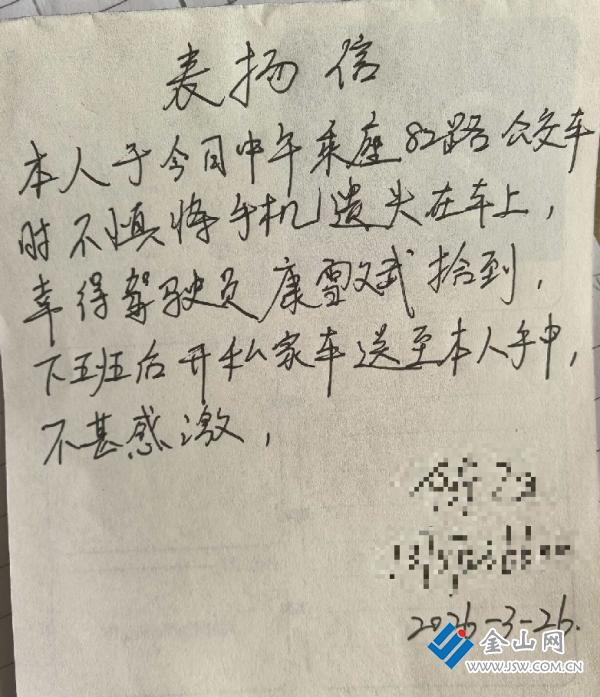 表扬信
本人于今日中午乘座82路公交车
时不慎将手机遗失在车上，
幸得驾驶员康雪斌拾到，
下班后开私家车送至本人手中，
不甚感激，
2026-3-26.
金山网
WWW.JSW.COM.CN